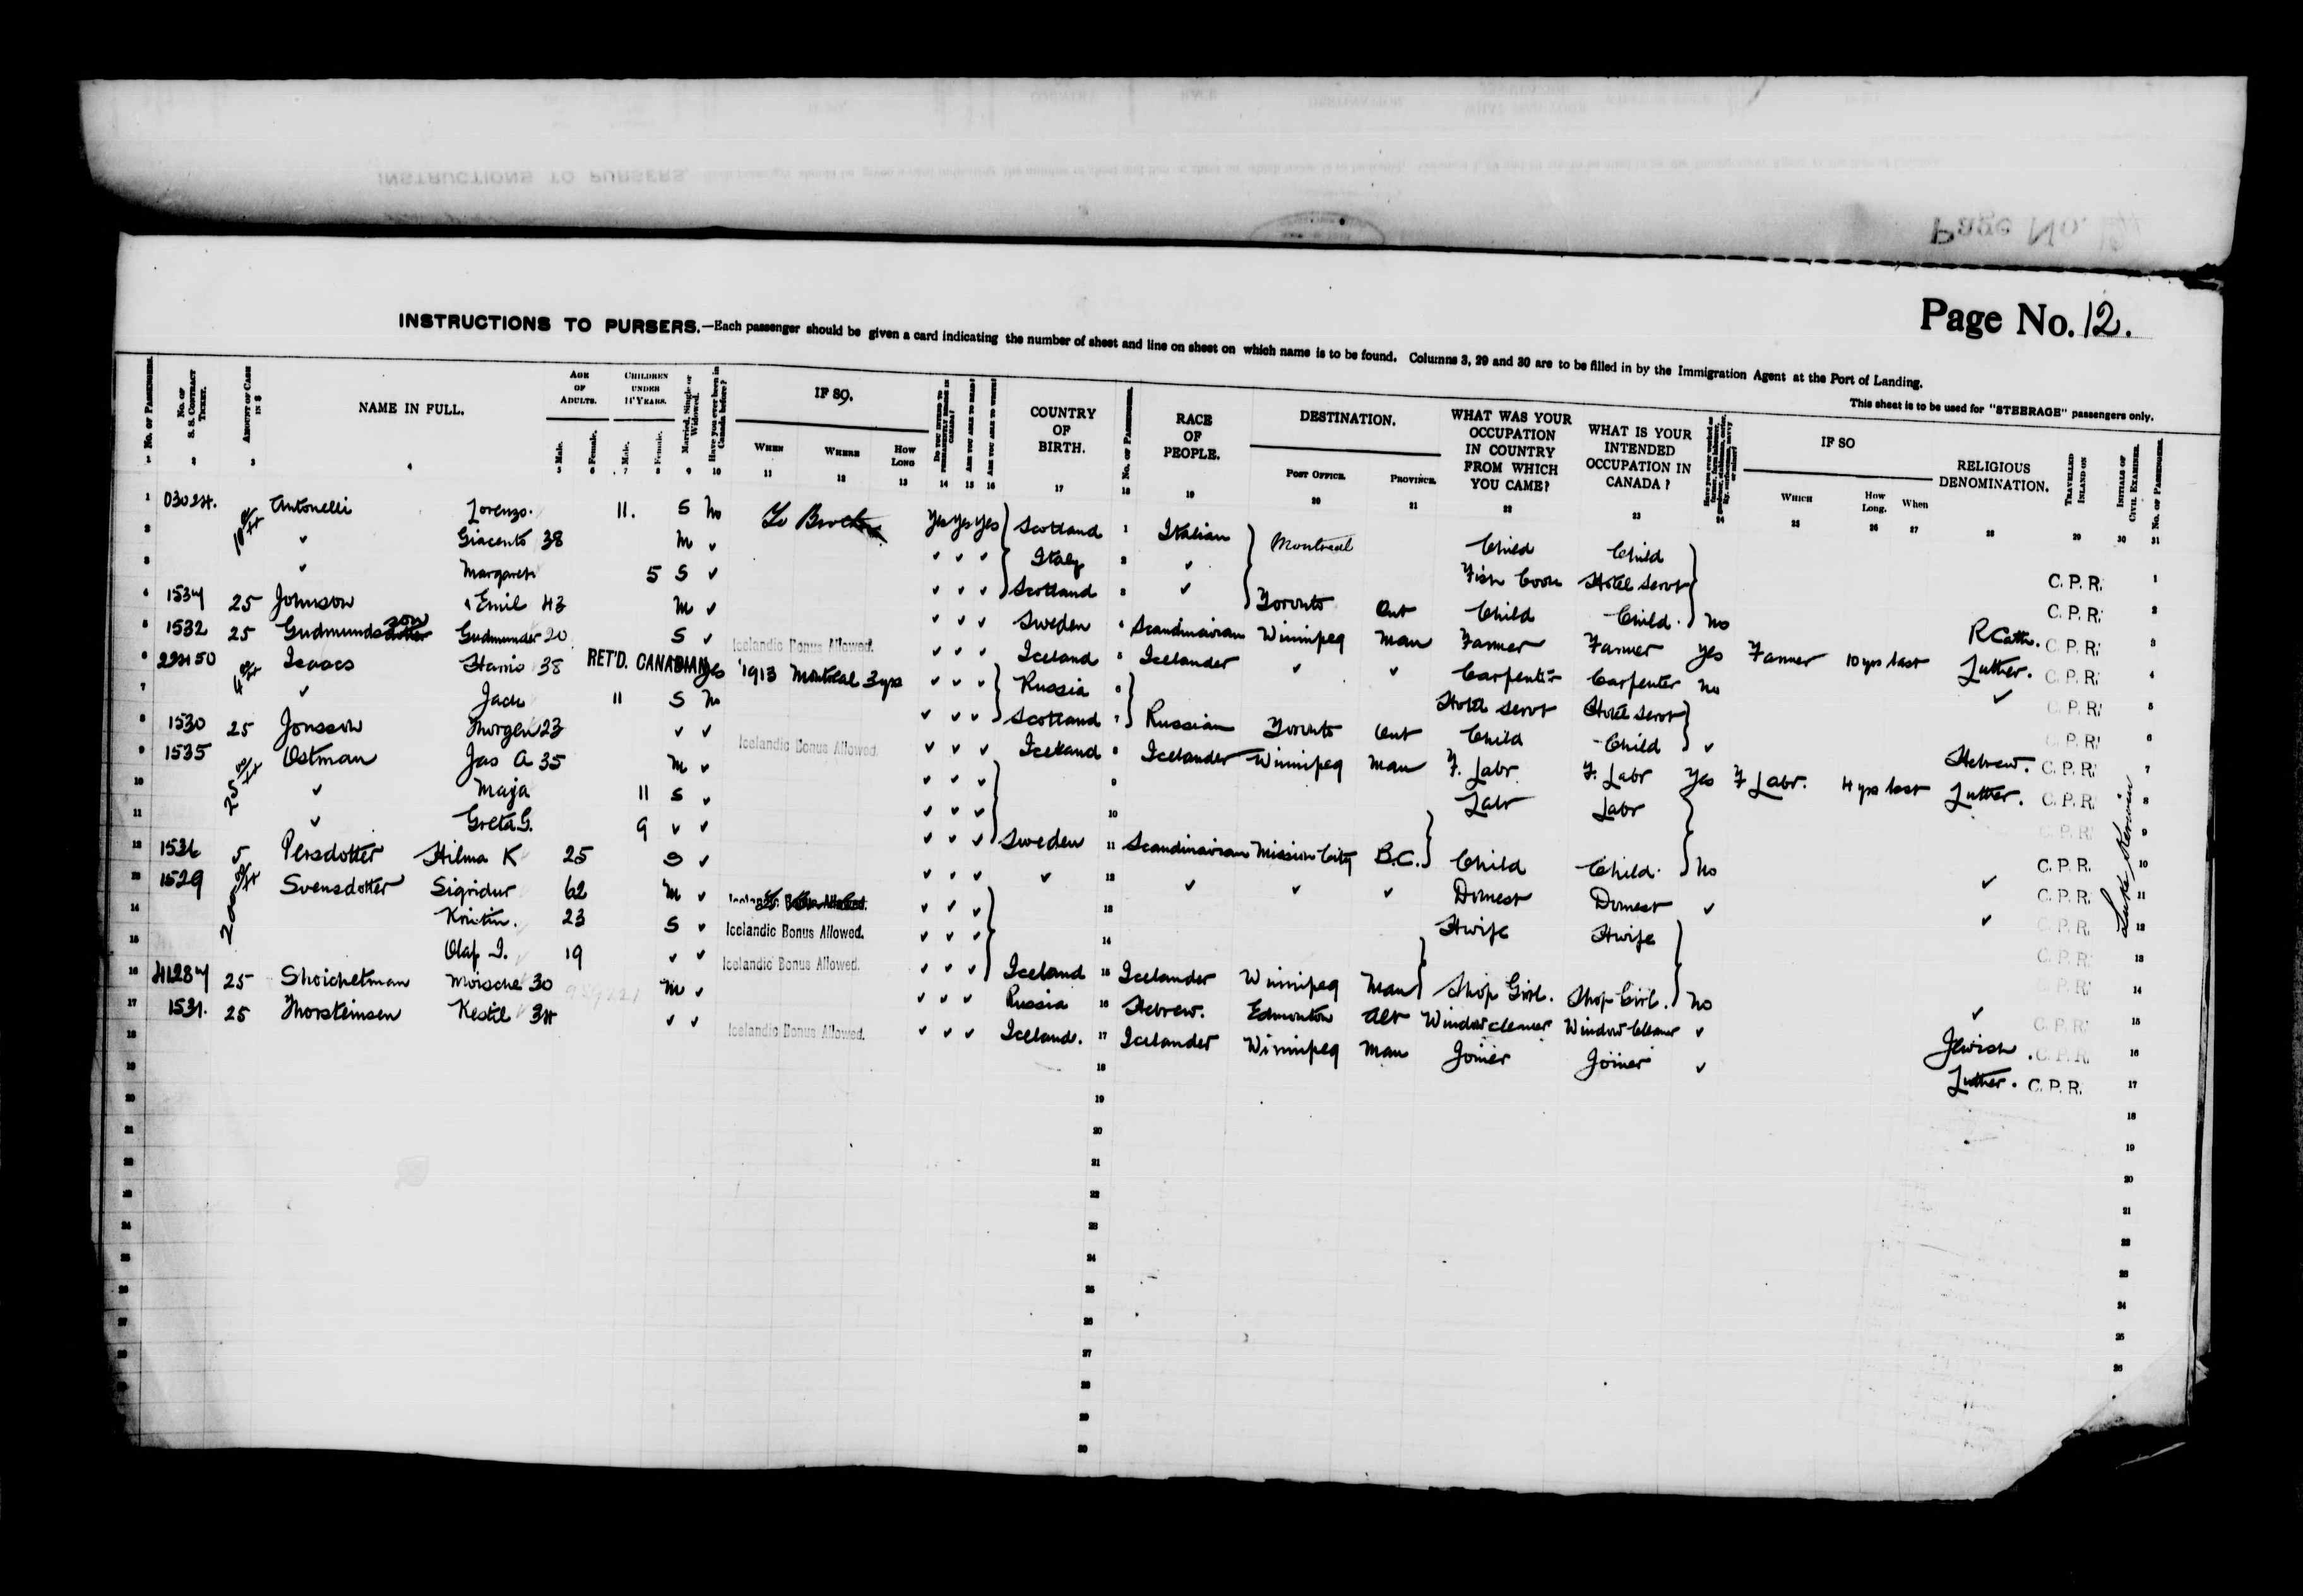 Page No. 12.
INSTRUCTIONS TO PURSERS.—Each passenger should be given a card indicating the number of sheet and line on sheet on which name is to be found. Columns 3, 29 and 30 are to be filled in by the Immigration Agent at the Port of Landing.
This sheet is to be used for "STEERAGE" passengers only.
No. OF PASSENGER. No. OF S. S. CONTRACT TICKET. AMOUNT OF CASH IN $ NAME IN FULL. AGE OF ADULTS. Male. Female. CHILDREN UNDER 11 YEARS. Male. Female. Married, Single or Widowed. Have you ever been in Canada before? IF SO. WHEN WHERE How LONG DO YOU INTEND TO PERMANENTLY RESIDE IN CANADA? ARE YOU ABLE TO READ? ARE YOU ABLE TO WRITE? COUNTRY OF BIRTH. No. OF PASSENGER. RACE OF PEOPLE. DESTINATION. POST OFFICE. PROVINCE. WHAT WAS YOUR OCCUPATION IN COUNTRY FROM WHICH YOU CAME? WHAT IS YOUR INTENDED OCCUPATION IN CANADA? IF SO WHICH How Long. When RELIGIOUS DENOMINATION. TRAVELLED INLAND ON INITIALS OF CIVIL EXAMINER. No. OF PASSENGER.
1 2 3 4 5 6 7 8 9 10 11 12 13 14 15 16 17 18 19 20 21 22 23 24 25 26 27 28 29 30 31
1 Antonelli Lorenzo. 11. S No To Brother Yes Yes Yes Scotland 1 Italian Montreal Child Child C.P.R. 1
2 ✓ Giacento 38 M ✓ ✓ ✓ ✓ Italy 2 ✓ Fish Cook Hotel Servt C.P.R. 2
3 ✓ Margaret 5 S ✓ ✓ ✓ ✓ Scotland 3 ✓ Toronto Ont Child Child. No R Cath. C.P.R. 3
4 1534 25 Johnson Emil 43 M ✓ ✓ ✓ ✓ Sweden 4 Scandinavian Winnipeg Man Farmer Farmer Yes Farmer 10 yrs last Luther. C.P.R. 4
5 1532 25 Gudmundson Gudmunder 20 S ✓ Icelandic Bonus Allowed. ✓ ✓ ✓ Iceland 5 Icelander ✓ ✓ Carpenter Carpenter No ✓ C.P.R. 5
6 Isaacs Harris 38 RET'D. CANADIAN Yes 1913 Montreal 3 yrs ✓ ✓ ✓ Russia 6 Hotel Servt Hotel Servt C.P.R. 6
7 ✓ Jack 11 S No ✓ ✓ ✓ Scotland 7 Russian Toronto Ont Child Child ✓ Hebrew. C.P.R. 7
8 1530 25 Jonsson Thorgen 23 ✓ ✓ Icelandic Bonus Allowed. ✓ ✓ ✓ Iceland 8 Icelander Winnipeg Man F. Labr F. Labr Yes F Labr. 4 yrs last Luther. C.P.R. 8
9 1535 Ostman Jas A 35 M ✓ ✓ ✓ ✓ 9 Labr Labr C.P.R. 9
10 ✓ Maja 11 S ✓ ✓ ✓ ✓ 10 C.P.R. 10
11 ✓ Greta G. 9 ✓ ✓ ✓ ✓ ✓ Sweden 11 Scandinavian Mission City B.C. Child Child. No ✓ C.P.R. 11
12 1536 5 Persdotter Hilma K 25 S ✓ ✓ ✓ ✓ ✓ 12 ✓ ✓ ✓ Domest Domest ✓ ✓ C.P.R. 12
13 1529 Svensdotter Sigridur 62 M ✓ Icelandic Bonus Allowed. ✓ ✓ ✓ 13 Hwife Hwife C.P.R. 13
14 Kristin. 23 S ✓ Icelandic Bonus Allowed. ✓ ✓ ✓ 14 C.P.R. 14
15 Olaf I. 19 ✓ ✓ Icelandic Bonus Allowed. ✓ ✓ ✓ Iceland 15 Icelander Winnipeg Man Shop Girl. Shop Girl. No ✓ C.P.R. 15
16 41284 25 Shoichetman Moische 30 M ✓ ✓ ✓ ✓ Russia 16 Hebrew. Edmonton Alt Window cleaner Window Cleaner ✓ Jewish. C.P.R. 16
17 1531. 25 Thorsteinsen Kestil 34 ✓ ✓ Icelandic Bonus Allowed. ✓ ✓ ✓ Iceland. 17 Icelander Winnipeg Man Joiner Joiner ✓ Luther. C.P.R. 17
18 18 18
19 19 19
20 20 20
21 21 21
22 22 22
23 23 23
24 24 24
25 25 25
26 26 26
27 27
28 28
29
30